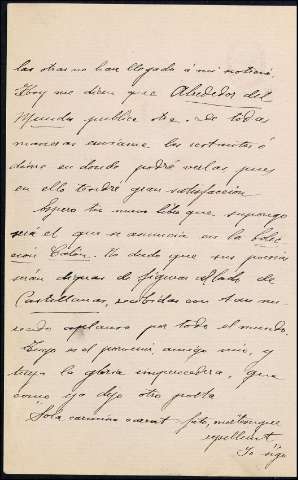 las otras no han llegado á mi noticia.
Hoy me dicen que Alrededor del
Mundo publica otra. De todas
maneras envíame las restantes ó
dime en donde podré verlas pues
en ello tendré gran satisfacción.
Espero tu nuevo libro que supongo
será el que se anuncia en la Colec-
ción Colón. No dudo que sus poesías
serán dignas de figurar al lado de
Castellanas, recibidas con tan me-
recido aplauso por todo el mundo.
Tuyo es el porvenir amigo mío, y
tuya la gloria imperecedera, que
como ya dijo otro poeta
Sola carmina
expellunt.
Yo sigo